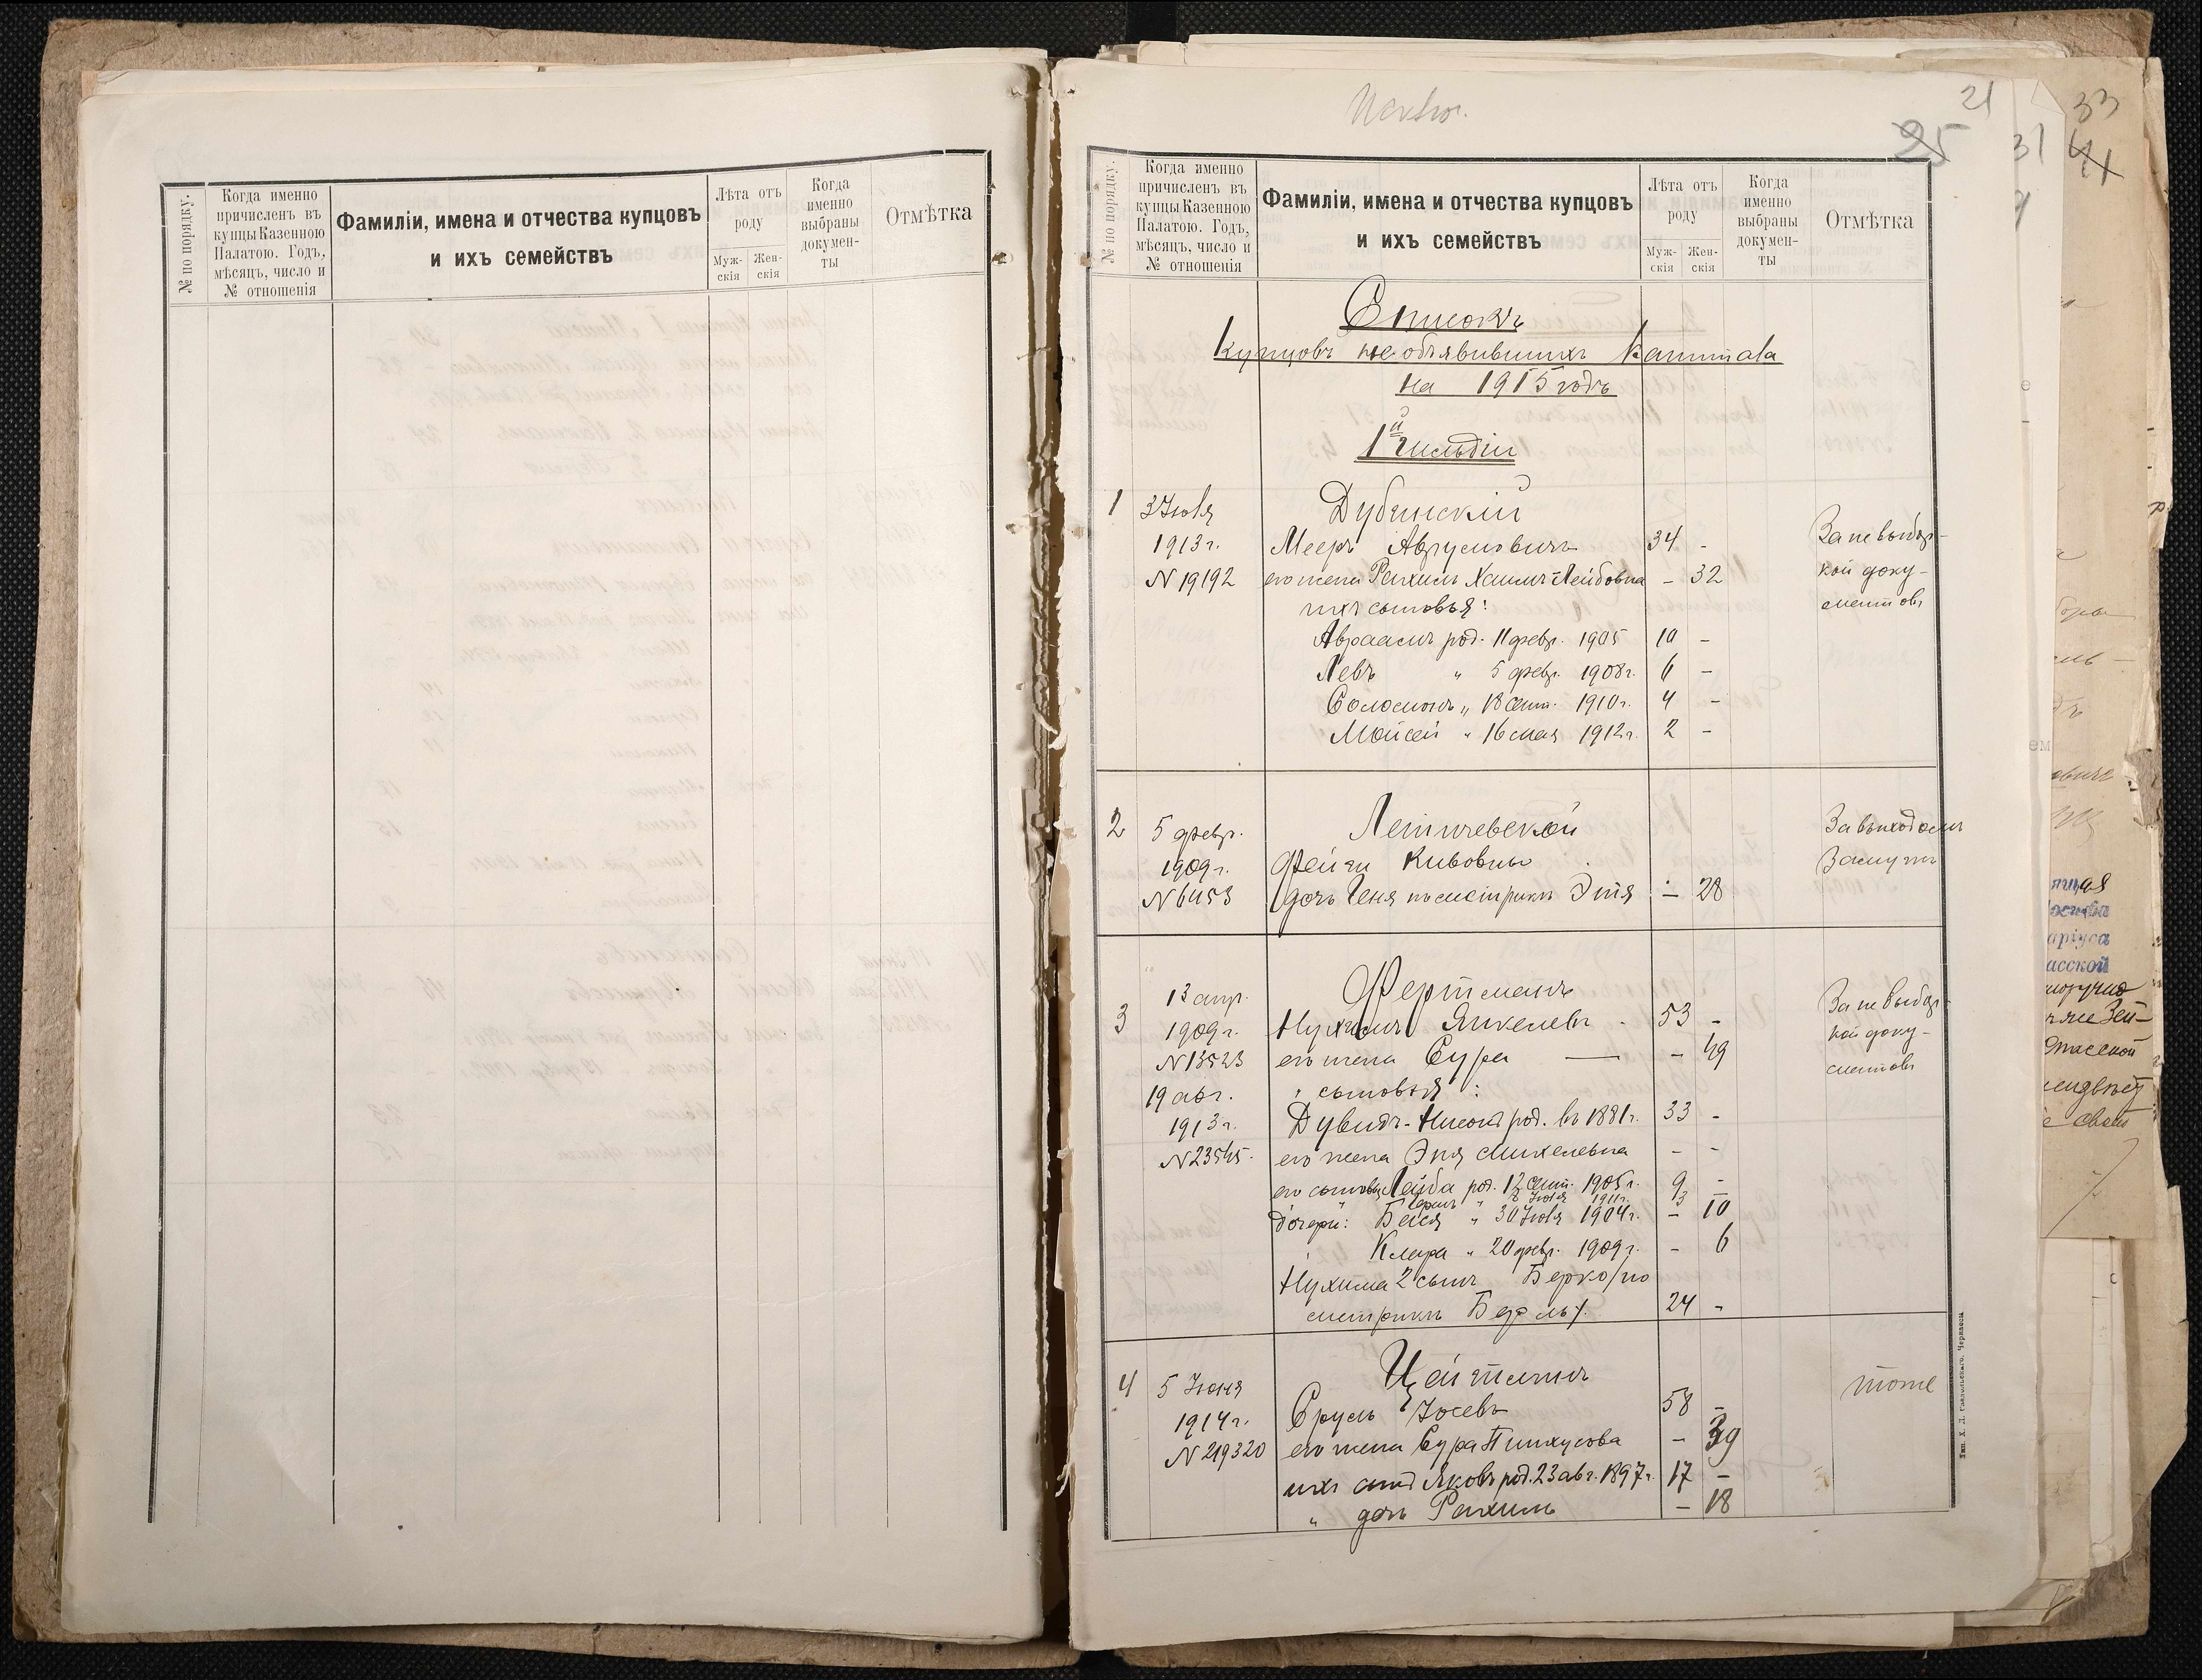 № по порядку.
Когда именно
причисленъ въ
купцы Казенною
Палатою. Годъ,
мѣсяцъ, число и
№ отношенія
Фамиліи, имена и отчества купцовъ
и ихъ семействъ
Лѣта отъ
роду
Муж-
скія
Жен-
скія
Когда
именно
выбраны
докумен-
ты
Отмѣтка
21
25
№ по порядку.
Когда именно
причисленъ въ
купцы Казенною
Палатою. Годъ,
мѣсяцъ, число и
№ отношенія
Фамиліи, имена и отчества купцовъ
и ихъ семействъ
Лѣта отъ
роду
Муж-
скія
Жен-
скія
Когда
именно
выбраны
докумен-
ты
Отмѣтка
Списокъ
купцовъ необъявившихъ капитала
на 1915 годъ
1й гильдіи
1 3 Іюля Дубинскій
1913 г. Мееръ Аврумовичъ 34 - За не выбор-
N 19192 его жена Рахиль Хаимъ-Лейбовна - 32 кой доку-
ихъ сыновья: ментовъ
Авраамъ род. 11 февр. 1905 10 -
Левъ " 5 февр. 1908 г. 6 -
Соломонъ " 18 сент. 1910 г. 4 -
Мойсей " 16 мая 1912 г. 2 -
2 5 февр. Летичевской За выходомъ
1909 г. Фейги Кивовны замужъ
N 6453 дочь Геня по метрикѣ Этя - 28
13 апр. Фертманъ За не выбор-
3 1909 г. Нухимъ Янкелевъ 53 - кой доку-
N 13523 его жена Сура - 49 ментовъ
19 авг. " сыновья:
1913 г. Дувидъ-Нисонъ род. въ 1881 г. 33 -
N 23545. его жена Эня Михелевна - -
его сыновья Лейба род. 12 сент. 1905 г. 9 -
" Іюля 1911 г. 3 -
дочери: Бейся " 30 Іюля 1904 г. - 10
Клара " 20 февр. 1909 г. - 6
Нухима 2 сынъ Берко /по
метрикѣ Берль/. 24 -
4 5 Іюня Цейтлинъ тоже
1914 г. Сруль Іосевъ 58 -
N 219320 его жена Сура Пинхусова - 39
ихъ сынъ Яковъ род. 23 авг. 1897 г. 17 -
" дочь Рахиль - 18
31
33
41